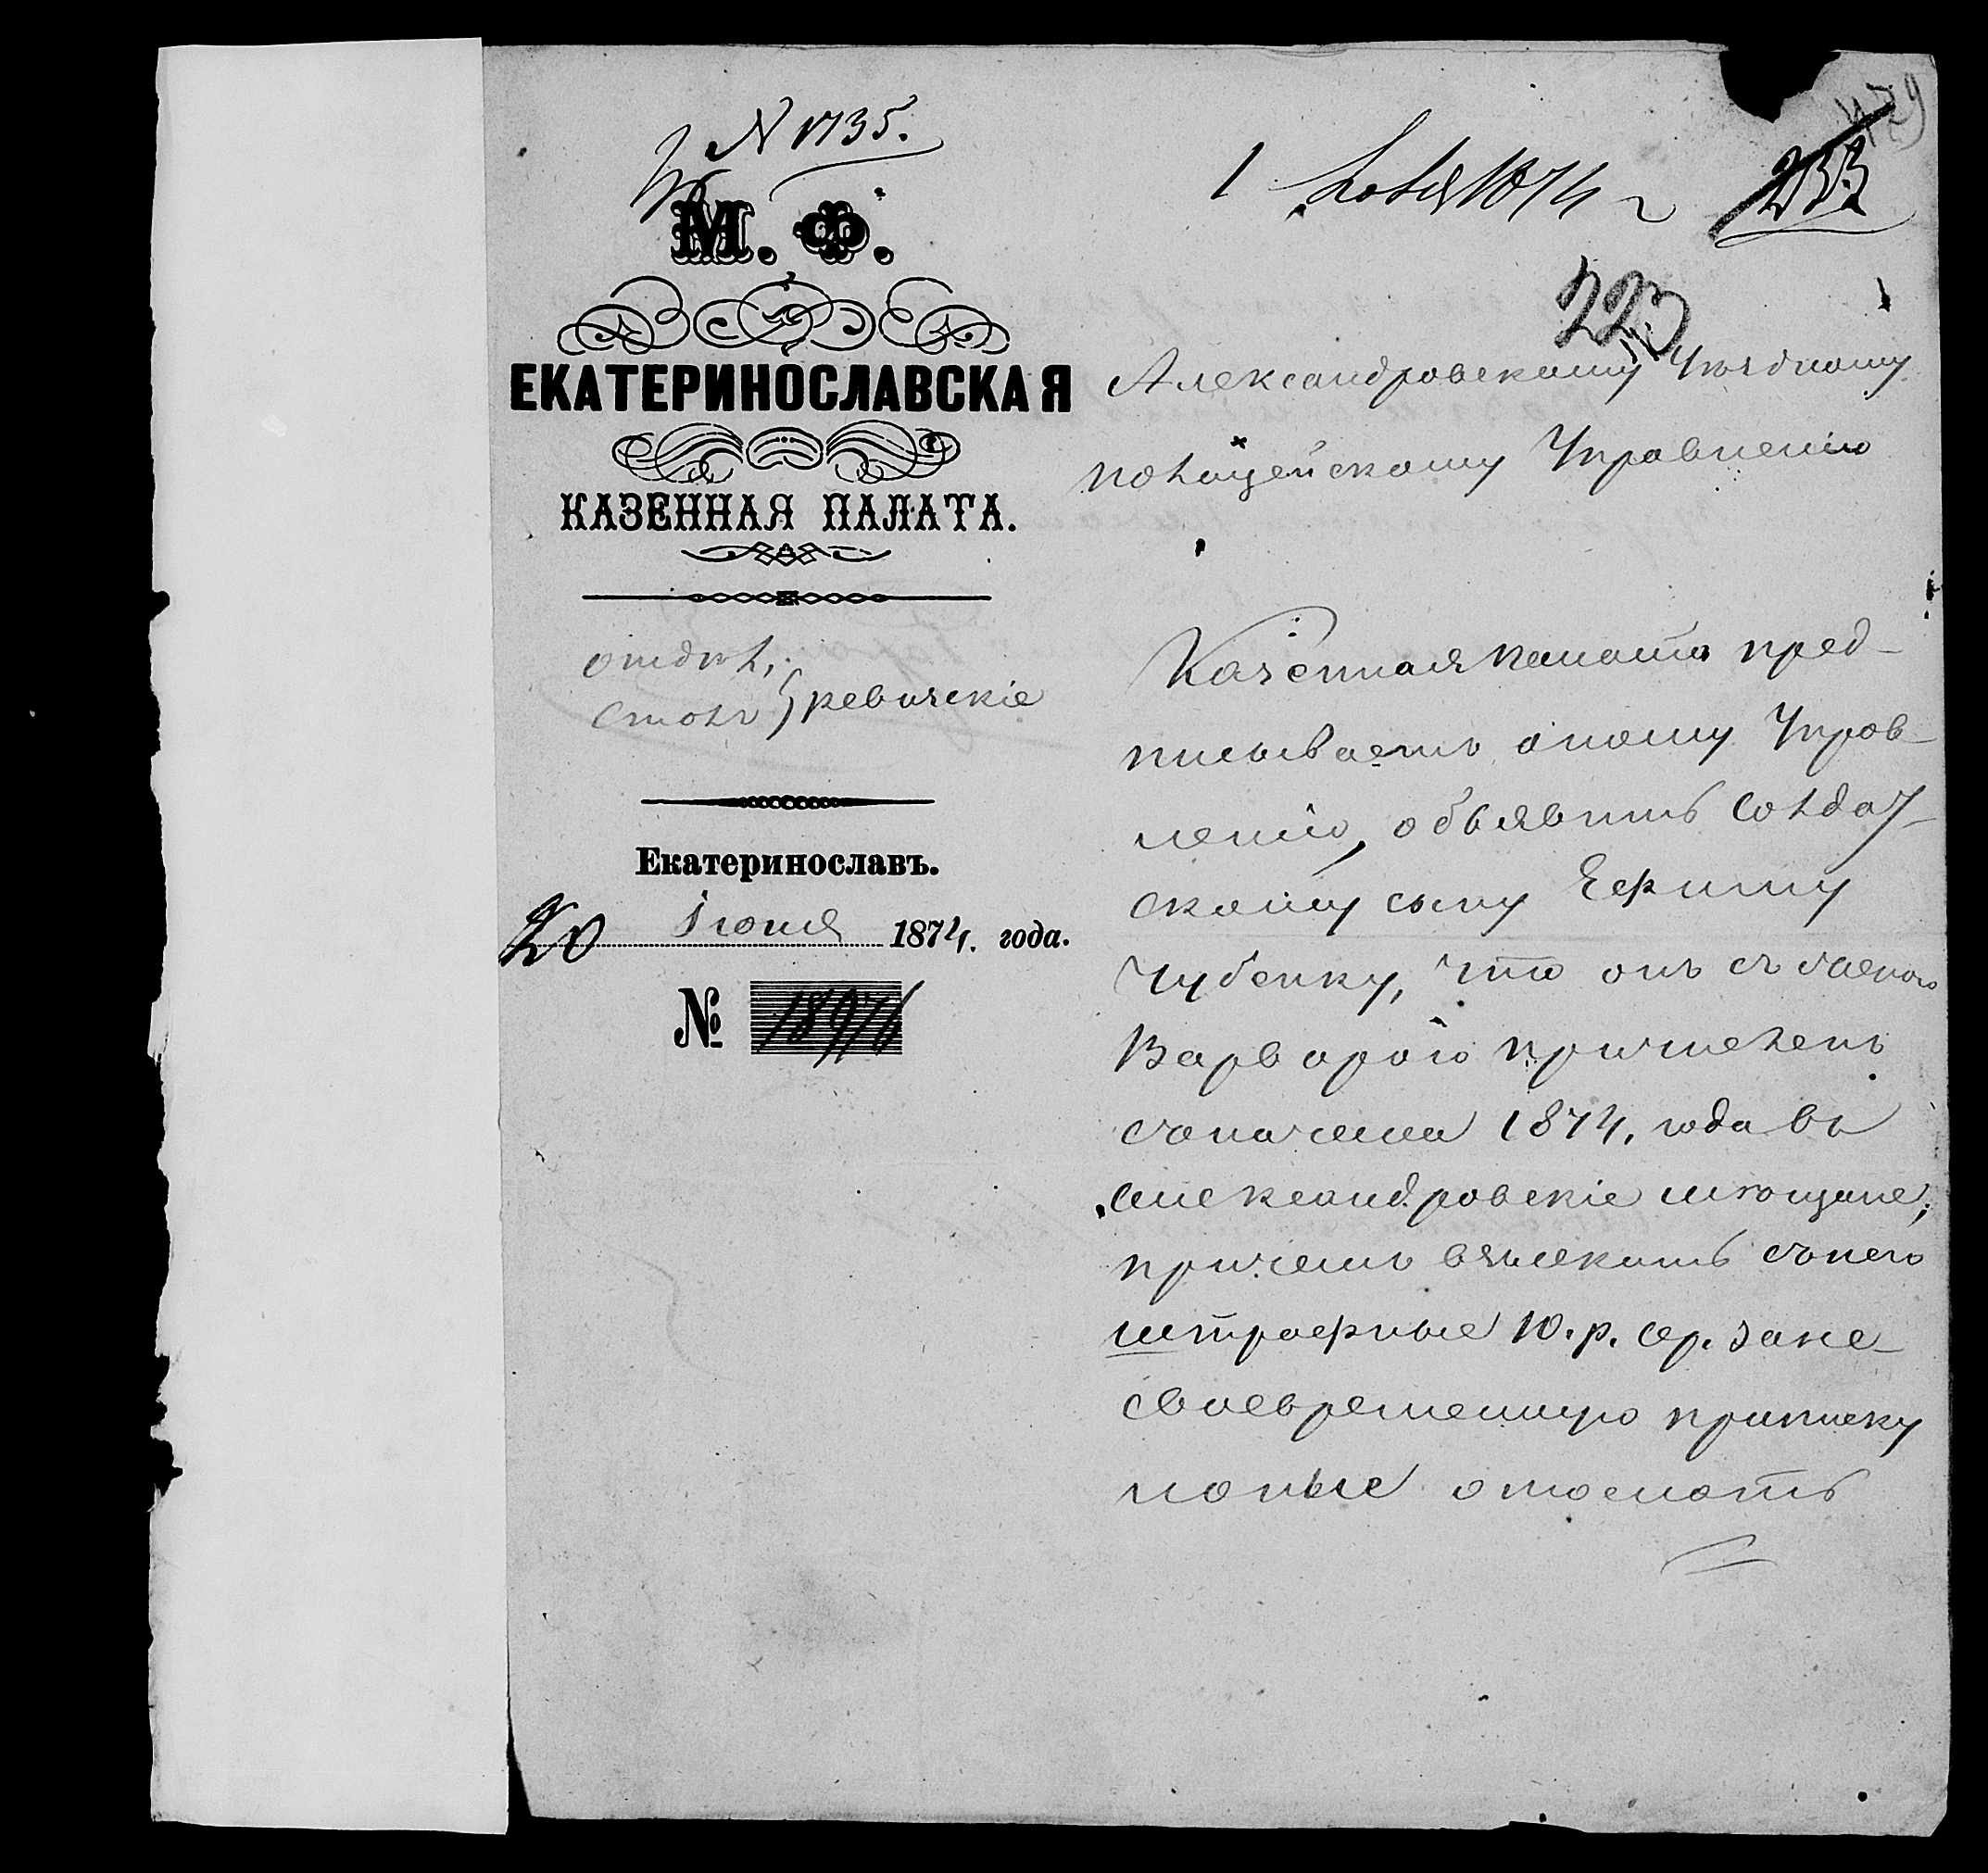 N 1735.
1 Июля 1874 г
233
479
223
М. Ф.
ЕКАТЕРИНОСЛАВСКАЯ
КАЗЕННАЯ ПАЛАТА.
Отдѣл.
Столъ } Ревизскіе
Екатеринославъ.
20 Іюня 1874. года.
№ 18976
Александровскому Уѣздному
Полицейскому Управленію
Казенная палата пред-
писываетъ оному Управ-
ленію, объявить солдат-
скому сыну Ефиму
Чубенку, что онъ съ женою
Варварою причисленъ
съ начала 1874. года въ
Александровскіе мѣщане,
причемъ взыскать съ него
штрафные 10. р. сер. за не-
своевременную приписку
и оные отослать